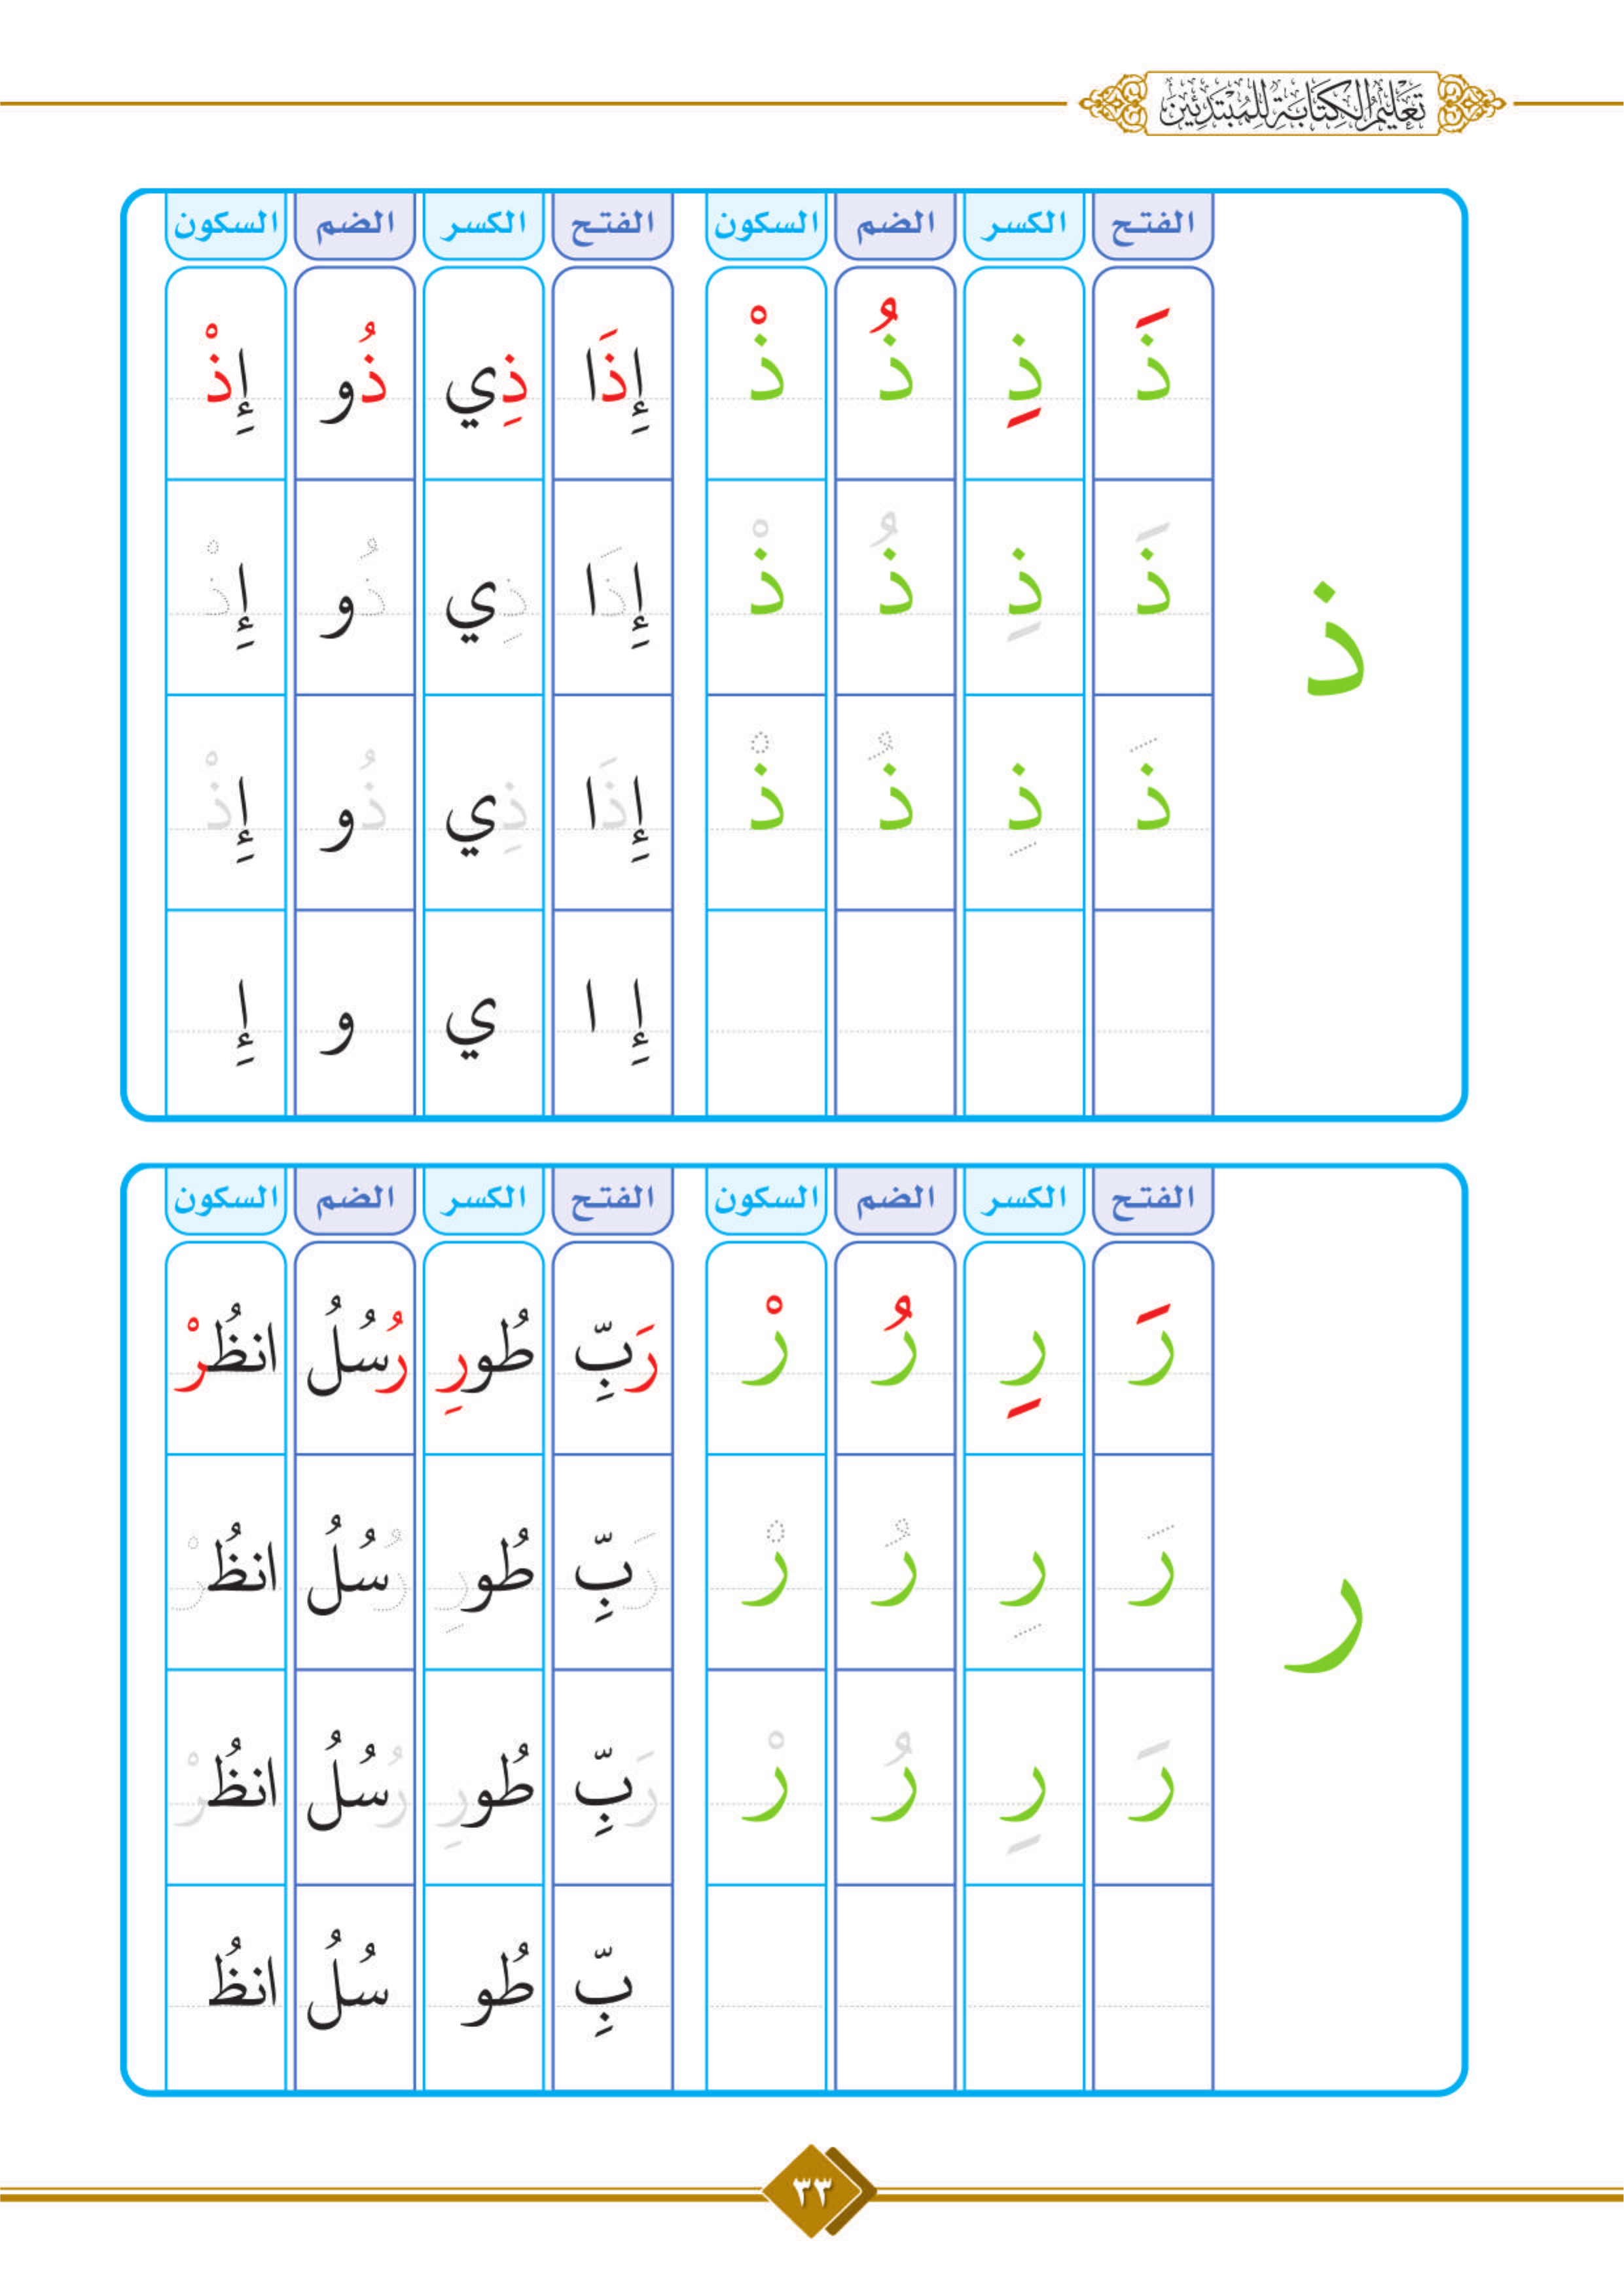 تَعْلِيمُ الْكِتَابَةِ لِلْمُبْتَدِئِينَ
الفتح الكسر الضم السكون الفتح الكسر الضم السكون
ذَ ذِ ذُ ذْ إِذَا ذِي ذُو إِذْ
ذ
ذَ ذِ ذُ ذْ إِذَا ذِي ذُو إِذْ
ذَ ذِ ذُ ذْ إِذَا ذِي ذُو إِذْ
إِ ا ي و إِ
الفتح الكسر الضم السكون الفتح الكسر الضم السكون
رَ رِ رُ رْ رَبِّ طُورِ رُسُلُ انظُرْ
ر
رَ رِ رُ رْ رَبِّ طُورِ رُسُلُ انظُرْ
رَ رِ رُ رْ رَبِّ طُورِ رُسُلُ انظُرْ
بِّ طُو سُلُ انظُ
٣٣